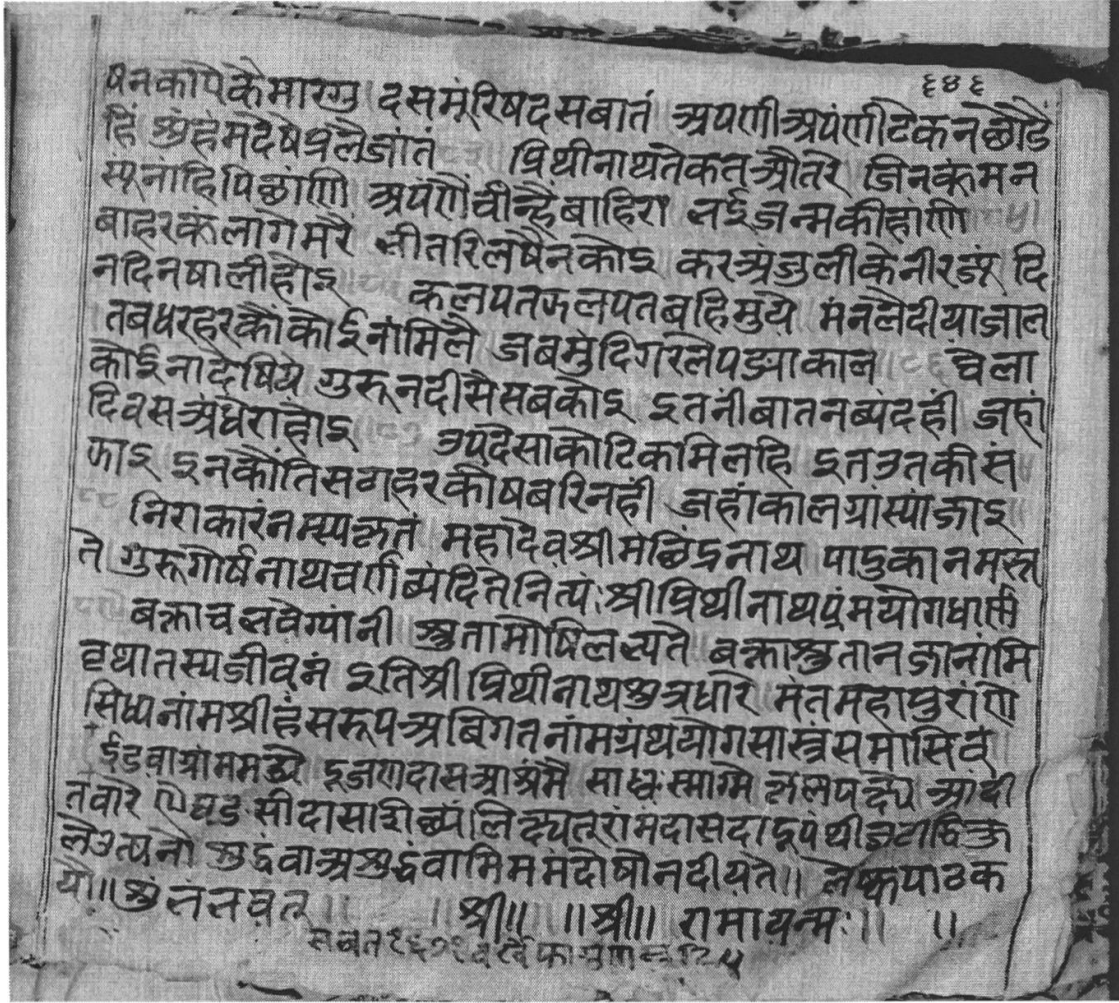 ६४६
षनकापैकेमारगु दसमूंरिषदसबातं अपणीअपंणीटेकनछोडै
हिं अंहंमदेषेप्रलैजांतं प्रिथीनाथतेकतऔतरे जिनकूंमन
स्यूनांहिपिछांणि अपंणैचीन्हैबाहिरा लईजन्मकीहांणि
बाहरकूंलागेमरै भीतरिलषैनकोइ करअंजुलीकेनीरज्यूं दि
नदिनषालीहोइ कलपतफलपतबहिमुये मंनलैदीयाजाल
तबधरहरकौंकोईनांमिलै जबमुदिगरलेपड्याकाल चेला
कोईनादेषिये गुरूनदीसैसबकोइ इतनीबातनब्यंदहीं जहां
दिवसअंधेराहोइ उपदेसाकोटिकमिलहि इतउतकीसं
फाइ इनकौंतिसगहरकीषबरिनहीं जहांकालग्रास्यांजाइ
निराकारंनमस्यक्रतं महादेवश्रीमछिंद्रनाथ पादुकानमस्त
ते गुरूगोर्षनाथचर्णब्यंदितेनित्यं श्रीप्रिथीनाथप्रंमयोगधार्णं
बक्ताचभवेग्यांनी श्रुतामोषिलभ्यते बक्ताश्रुतानजानांमि
वृथातस्यजीवनं इतिश्रीप्रिथीनाथशुत्रधारे मंतमहापुरांण
सिध्यनांमश्रीहंसरूपअबिगतनांमग्रंथयोगसास्त्रसमासिवं
ईडवाग्रांममधे दूजणदासआश्रंमे साध
तवारे रांमदासदादूपंथी
लेउत्पनो श्रुद्धंवाअश्रुद्धंवामिममंदोषोनदीयते॥ लेष्कपाठक
यो॥ श्रुंभंभवत् ॥ ॥श्री॥ ॥श्री॥ रामायन्मः॥ ॥